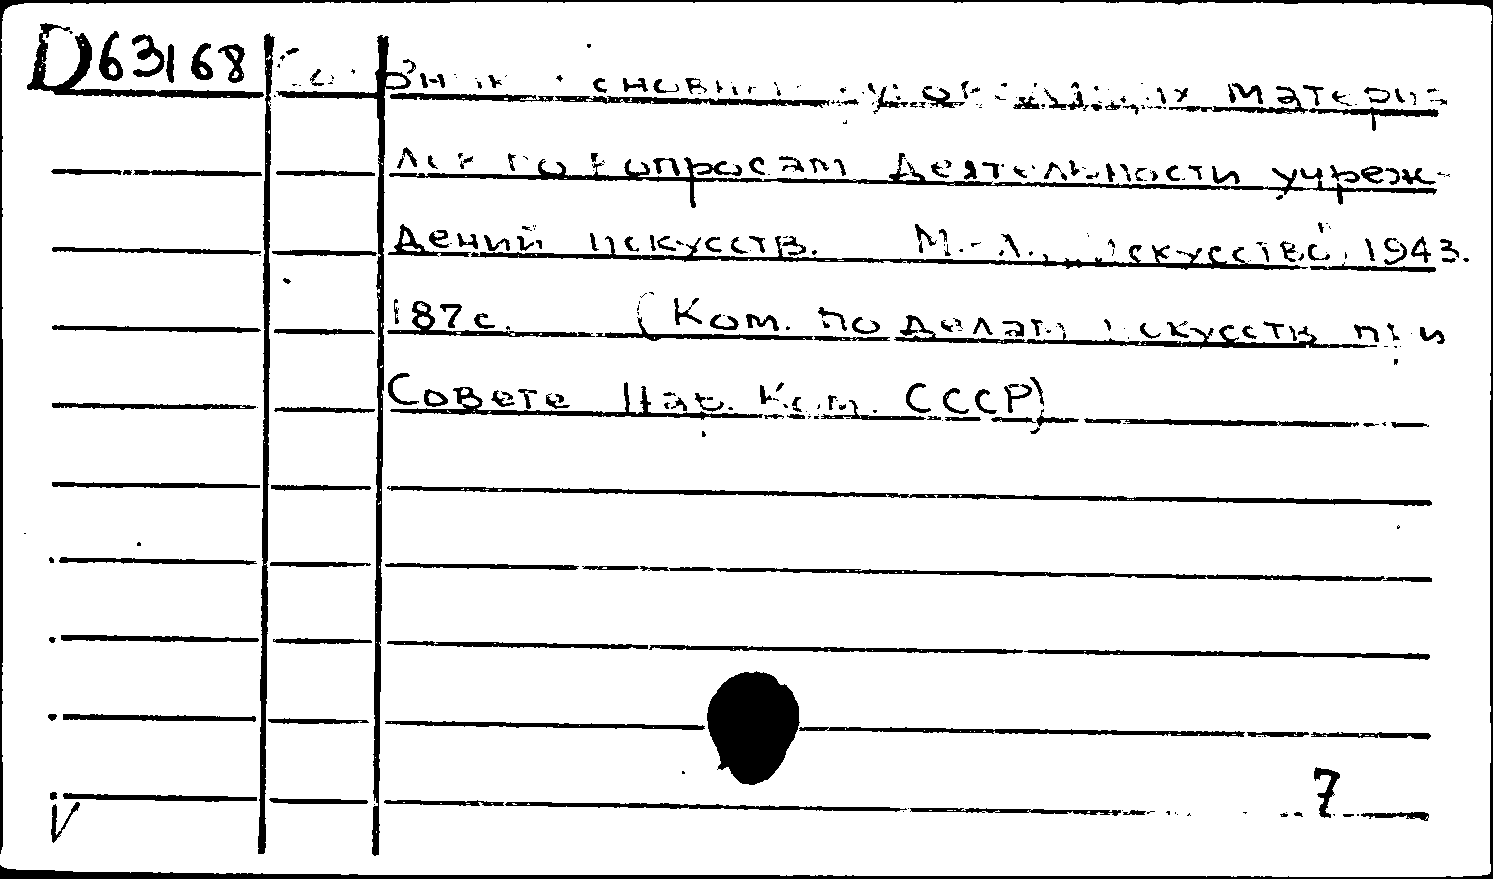 D63168 материа
лов по вопросам деятельности учреж-
дений искусств. М.-Л., „Искусство", 1943.
187 с. (Ком. по делам искусств при
Совете Нар. Ком. СССР)
7